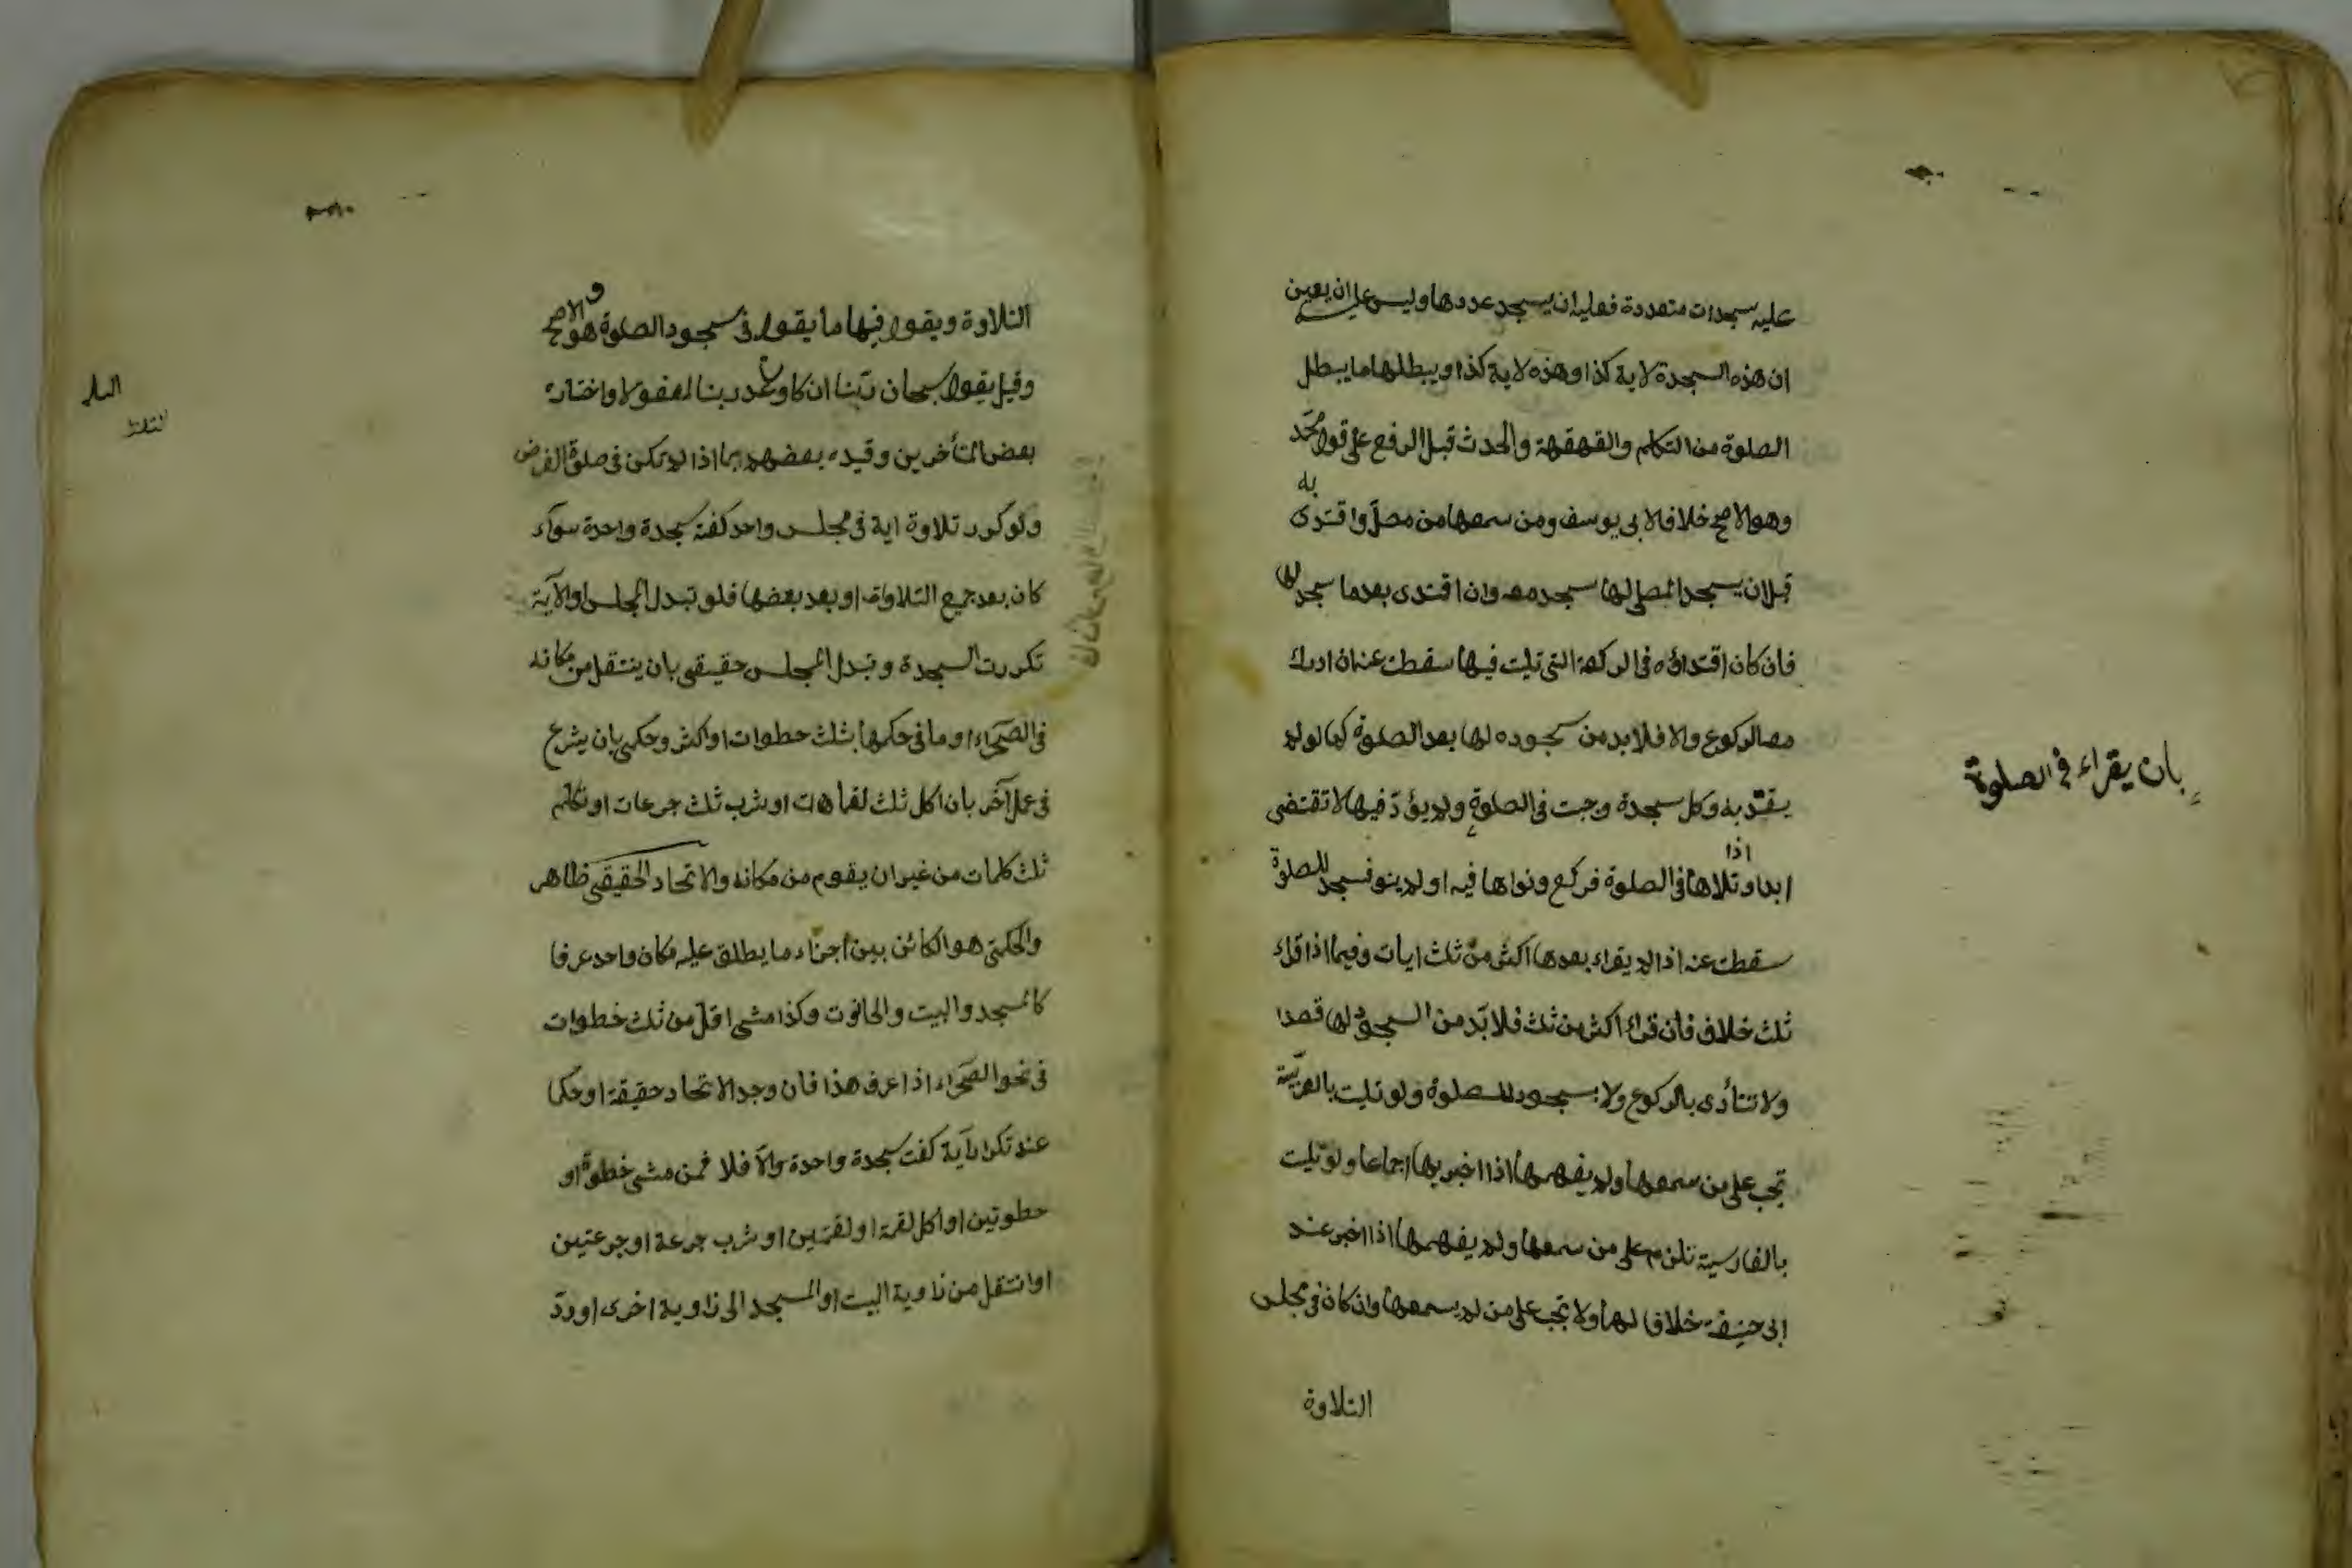 عليه سجدات متعددة فعليه ان يسجد عددها وليس عليه ان يعين
ان هذه السجدة لاية كذا وهذه لاية كذا ويبطلها ما يبطل
الصلوة من التكلم والقهقهة والحدث قبل الرفع على قول محمّد
وهو الاصح خلافا لابى يوسف ومن سمعها من مصلّ واقتدى به
قبل ان يسجد المصلى لها سجد معه وان اقتدى بعد ما سجد لها
فان كان اقتداؤه فى الركعة التى تليت فيها سقطت عنه ان ادرك
معه الركوع والا فلا بد من سجوده لها بعد الصلوة كما لو لم
يقتد به وكل سجدة وجبت فى الصلوة ولم يؤدّ فيها لا تقتضى
بان يقراء فى الصلوة
ابدا و اذا تلاها فى الصلوة فركع ونواها فيه او لم ينو فسجد للصلوة
سقطت عنه اذا لم يقراء بعدها اكثر من ثلث ايات وفيما اذا قراء
ثلث خلاف فان قراء اكثر من ثلث فلا بدّ من السجود لها قصدا
ولا تتأدى بالركوع ولا بسجود للصلوة ولو تليت بالعربيّة
تجب على من سمعها ولم يفهمها اذا اخبر بها اجماعا ولو تليت
بالفارسية تلزم على من سمعها ولم يفهمها اذا اخبر عند
ابى حنيفة خلافا لهما ولا تجب على من لم يسمعها وان كان فى مجلس
التلاوة
التلاوة ويقول فيها ما يقول فى سجود الصلوة و هو الاصح
وقيل يقول سبحان ربّنا ان كان وعد ربنا لمفعولا واختاره
بعض المتأخرين وقيده بعضهم بما اذا لم يكن فى صلوة الفرض
ولو كرر تلاوة اية فى مجلس واحد كفته سجدة واحدة سوآء
كان بعد جميع التلاوات او بعد بعضها فلو تبدل المجلس او الآية
تكررت السجدة وتبدل المجلس حقيقى بان ينتقل من مكانه
فى الصحراء او ما فى حكمها بثلث خطوات او اكثر وحكمى بان يشرع
فى عمل آخر بان اكل ثلث لقمات او شرب ثلث جرعات او تكلم
ثلث كلمات من غير ان يقوم من مكانه والاتحاد الحقيقى ظاهر
والحكمى هو الكائن بين اجزاء ما يطلق عليه مكان واحد عرفا
كالمسجد والبيت والحانوت وكذا مشى اقلّ من ثلث خطوات
فى نحو الصحراء اذا عرف هذا فان وجد الاتحاد حقيقة او حكما
عند تكرار آية كفت سجدة واحدة والّا فلا فمن مشى خطوة او
خطوتين او اكل لقمة او لقمتين او شرب جرعة او جرعتين
او انتقل من زاوية البيت او المسجد الى زاوية اخرى او ردّ